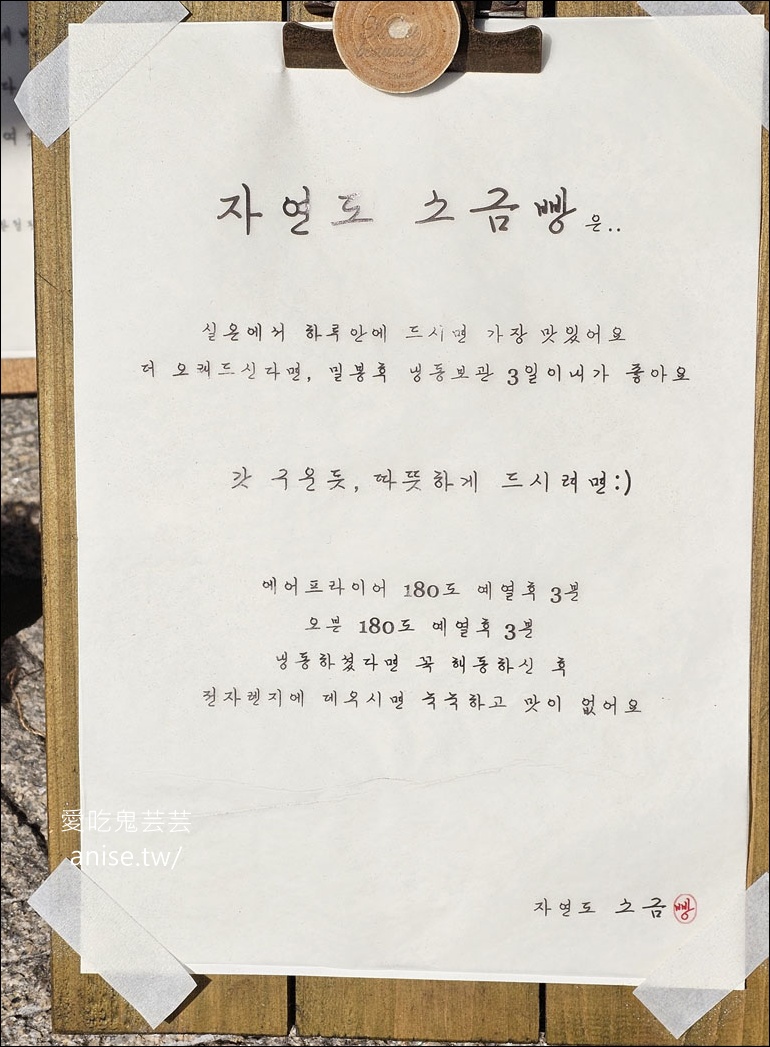 자연도 소금빵은..
실온에서 하루안에 드시면 가장 맛있어요
더 오래드신다면, 밀봉후 냉동보관 3일이내가 좋아요
갓 구운듯, 따뜻하게 드시려면:)
에어프라이어 180도 예열후 3분
오븐 180도 예열후 3분
냉동하셨다면 꼭 해동하신 후
전자렌지에 데우시면 눅눅하고 맛이 없어요
愛吃鬼芸芸
anise.tw/
자연도 소금빵